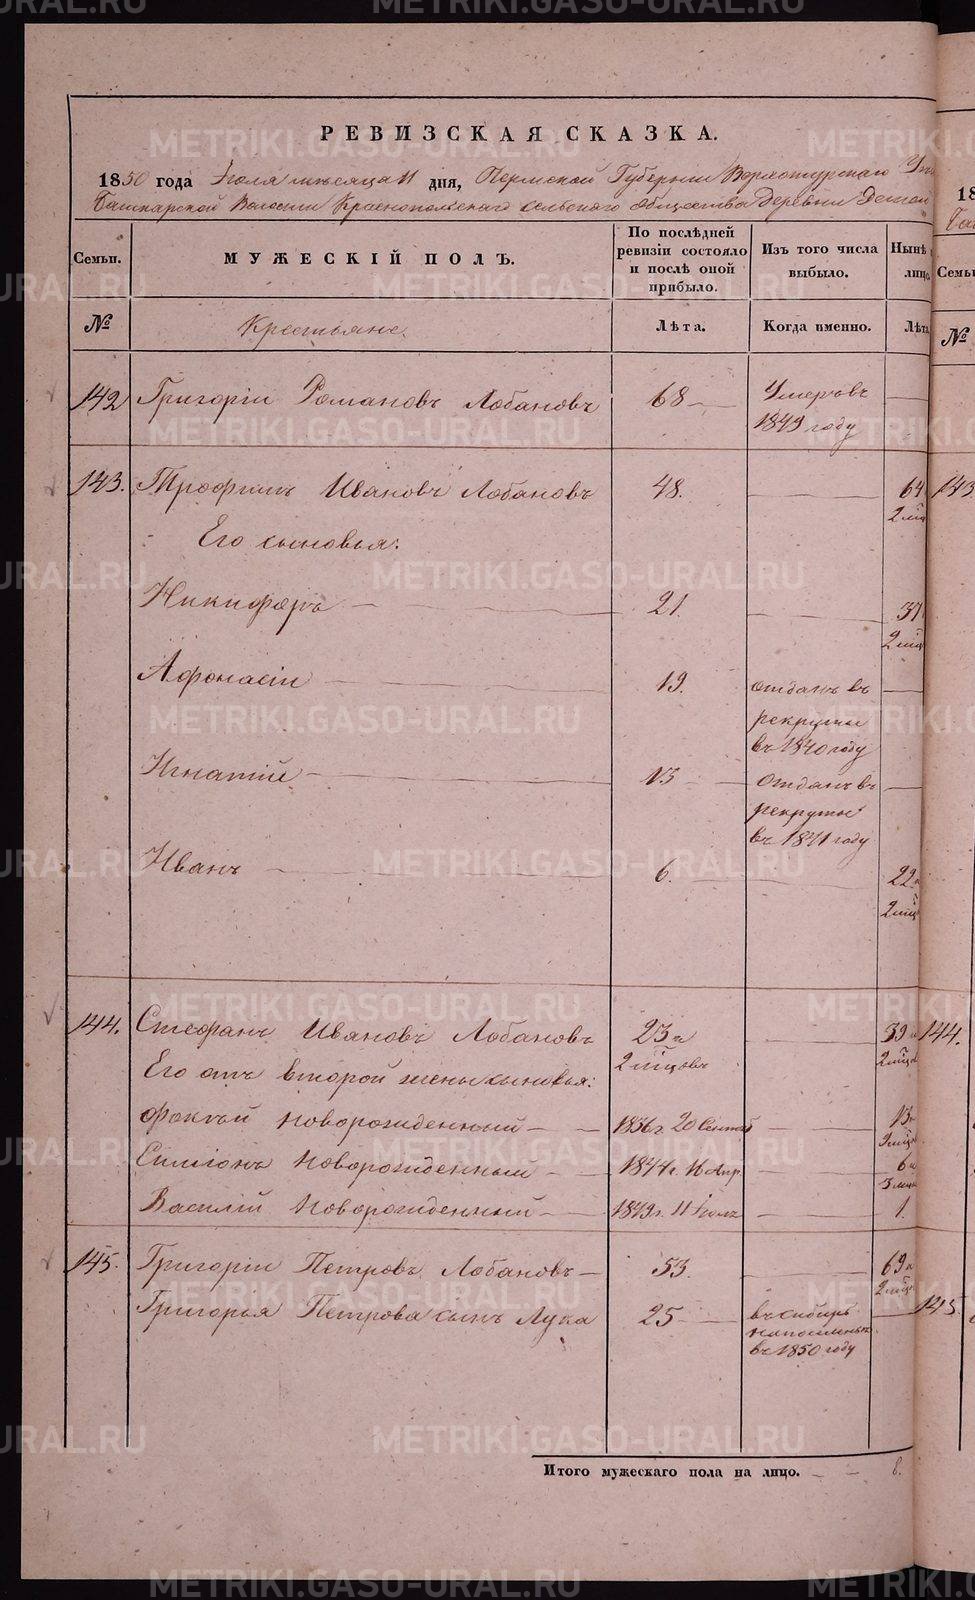 РЕВИЗСКАЯ СКАЗКА.
1850 года Іюля мѣсяца 11 дня, Пермской Губерніи Верхотурскаго
Башкарской Волости Краснопольскаго сельскаго общества Деревни
Семьи. МУЖЕСКІЙ ПОЛЪ. По послѣдней ревизіи состояло и послѣ оной прибыло. Изъ того числа выбыло. Нынѣ лицо. Семьи
№ Крестьяне Лѣта. Когда именно. Лѣта №
142 Григоріи Романовъ Лобановъ 68 Умеръ въ
1849 году
143. Трофимъ Ивановъ Лобановъ 48. 64 143
2 мѣц
Его сыновья:
Никифоръ 21. 37
2 мѣц
Афонасіи 19. отданъ въ
рекруты
въ 1840 году
Игнатій 13 отданъ въ
рекруты
въ 1841 году
Иванъ 6. 22
2 мѣц
144. Стефанъ Ивановъ Лобановъ 23 и 39 и 144.
2 мѣцовъ 2 мѣц
Его отъ второй жены сыновья:
новорожденный 1836 г. 20 Сентяб 13
9 мѣц
Симіонъ новорожденный 1844 г. 16 Апр 6 и
3 мѣц
Василій новорожденный 1849 г. 11 Іюля 1.
145. Григоріи Петровъ Лобановъ 53. 69 и
2 мѣц
Григорья Петрова сынъ Лука 25 въ сибирь 145
въ 1850 году
Итого мужескаго пола на лицо. 8.
METRIKI.GASO-URAL.RU